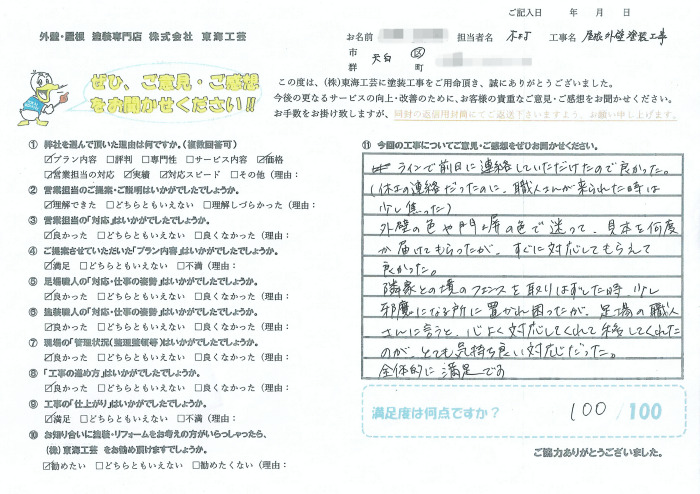 ご記入日　　年　月　日
外壁・屋根 塗装専門店 株式会社 東海工芸
お名前　担当者名 木村 工事名 屋根外壁塗装工事
市郡 天白 区町
ぜひ、ご意見・ご感想
をお聞かせください!!
この度は、(株)東海工芸に塗装工事をご用命頂き、誠にありがとうございました。
今後の更なるサービスの向上・改善のために、お客様の貴重なご意見・ご感想をお聞かせください。
お手数をお掛け致しますが、同封の返信用封筒にてご返送下さいますよう、お願い申し上げます。
① 弊社を選んで頂いた理由は何ですか。(複数回答可)
☑プラン内容 □評判 □専門性 □サービス内容 ☑価格
☑営業担当の対応 ☑実績 ☑対応スピード □その他(理由:
② 営業担当のご提案・ご説明はいかがでしたでしょうか。
☑理解できた □どちらともいえない □理解しづらかった(理由:
③ 営業担当の「対応」はいかがでしたでしょうか。
☑良かった □どちらともいえない □良くなかった(理由:
④ ご提案させていただいた「プラン内容」はいかがでしたでしょうか。
☑満足 □どちらともいえない □不満(理由:
⑤ 足場職人の「対応・仕事の姿勢」はいかがでしたでしょうか。
☑良かった □どちらともいえない □良くなかった(理由:
⑥ 塗装職人の「対応・仕事の姿勢」はいかがでしたでしょうか。
☑良かった □どちらともいえない □良くなかった(理由:
⑦ 現場の「管理状況(整理整頓等)はいかがでしたでしょうか。
☑良かった □どちらともいえない □良くなかった(理由:
⑧ 「工事の進め方」はいかがでしたでしょうか。
☑良かった □どちらともいえない □良くなかった(理由:
⑨ 工事の「仕上がり」はいかがでしたでしょうか。
☑満足 □どちらともいえない □不満(理由:
⑩ お知り合いに塗装・リフォームをお考えの方がいらっしゃったら、
(株)東海工芸 をお勧め頂けますでしょうか。
☑勧めたい □どちらともいえない □勧めたくない(理由:
⑪ 今回の工事についてご意見・ご感想をぜひお聞かせください。
ラインで前日に連絡していただけたので良かった。
(休みの連絡だったのに、職人さんが来られた時は
少し焦った)
外壁の色や門塀の色で迷って、見本を何度
か届けてもらったが、すぐに対応してもらえて
良かった。
隣家との境のフェンスを取りはずした時、少し
邪魔になる所に置かれ困ったが、足場の職人
さんに言うと、心よく対応してくれて移してくれた
のが、とても気持ち良い対応だった。
全体的に満足です
満足度は何点ですか? 100 /100
ご協力ありがとうございました。